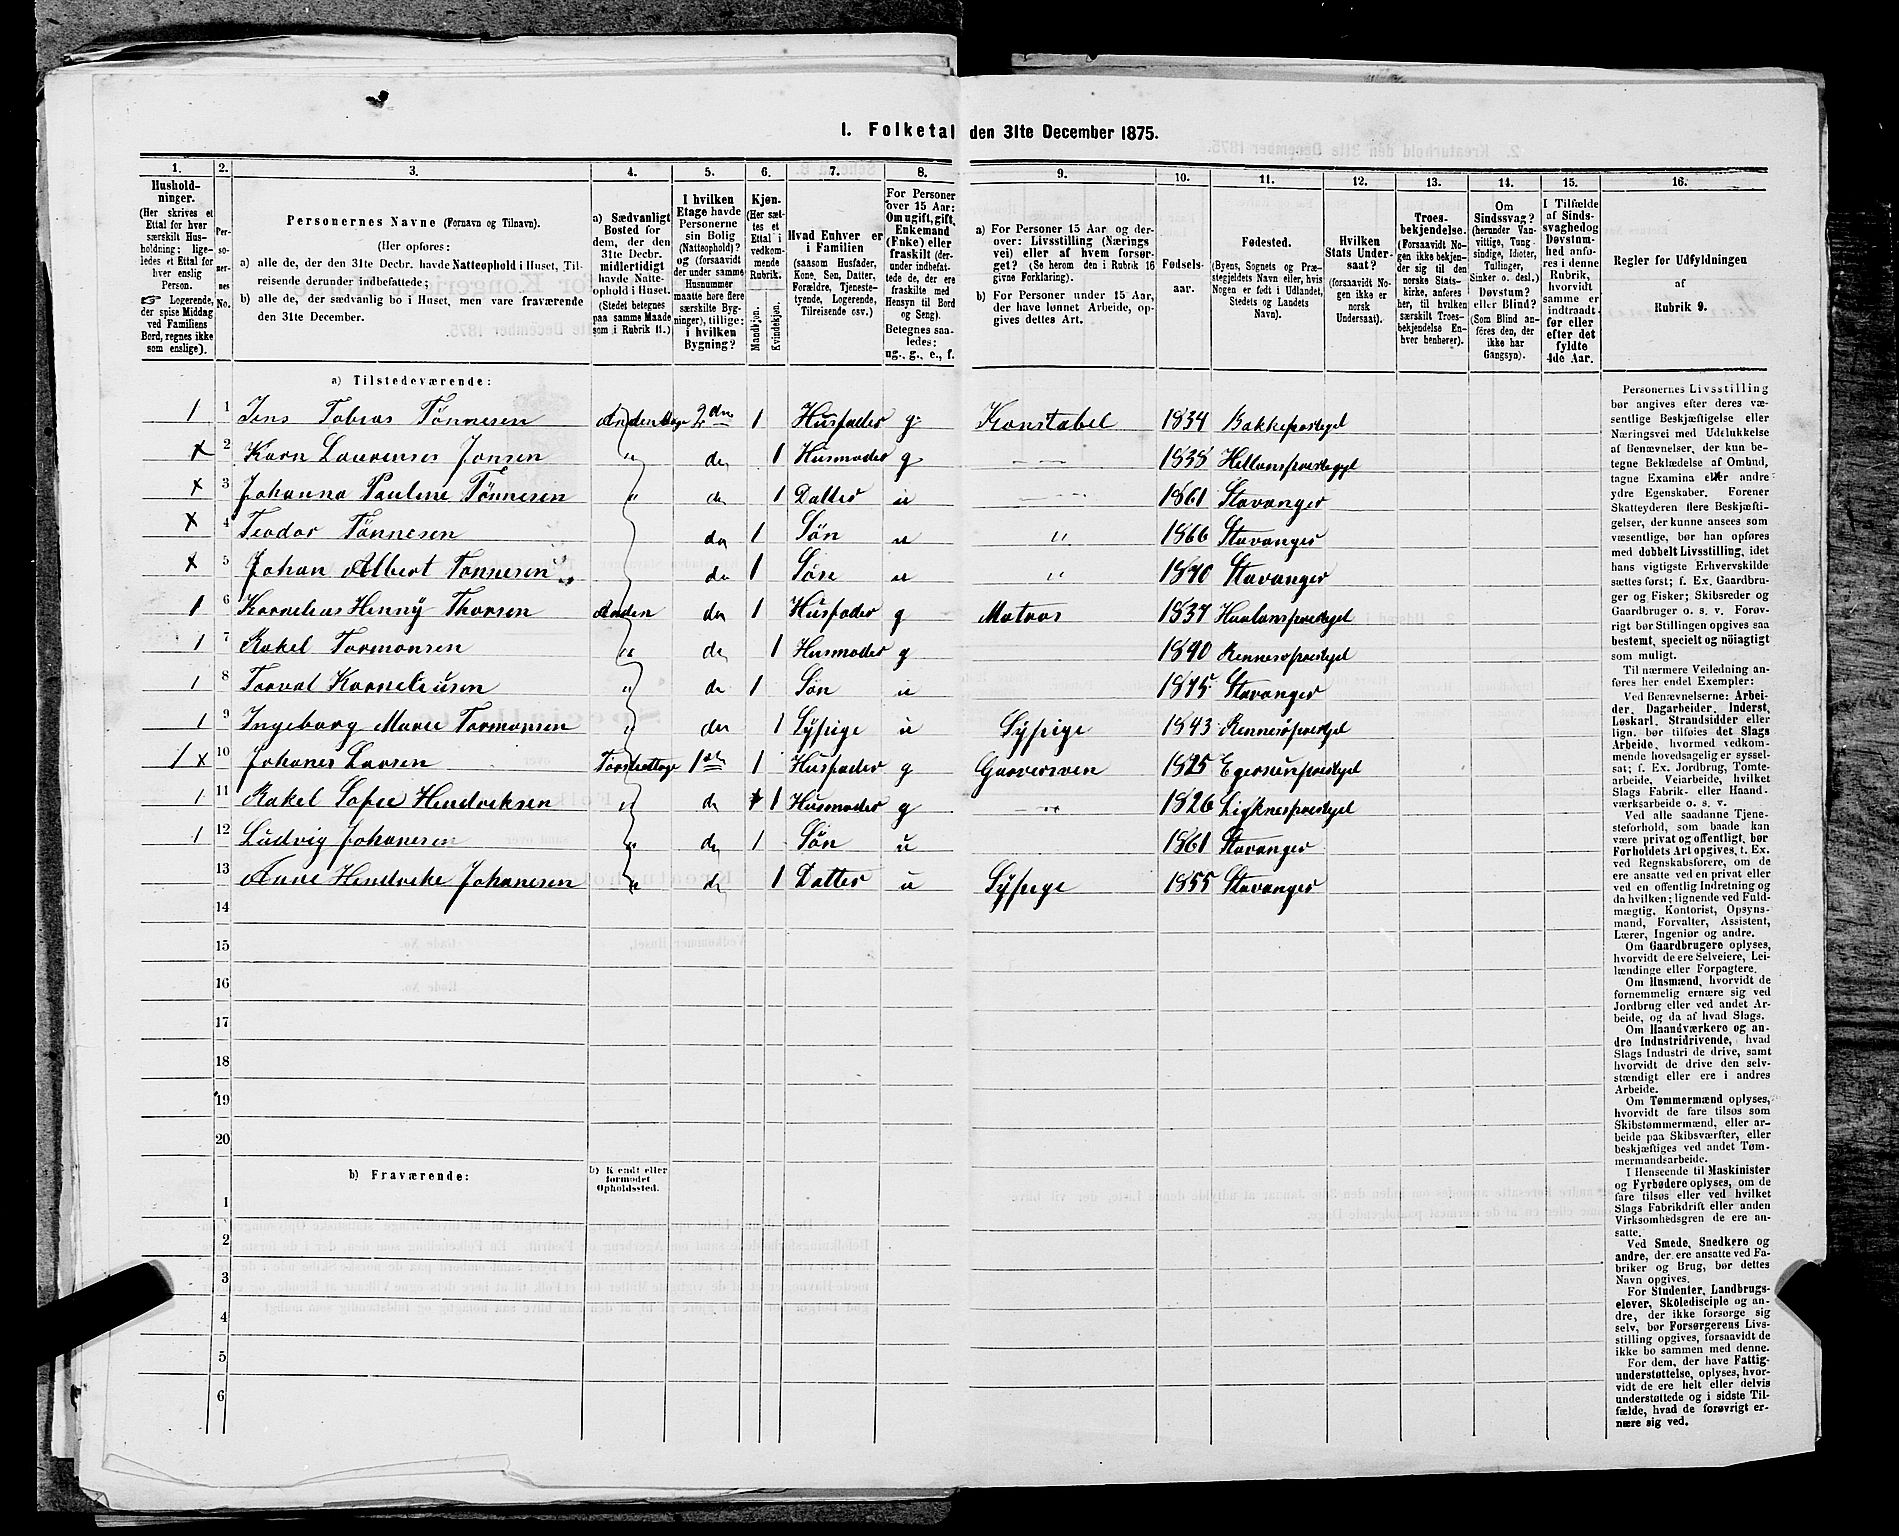 I. Folketal den 31te December 1875.
1. 2. 3. 4. 5. 6. 7. 8. 9. 10. 11. 12. 13. 14. 15. 16.
Hushold-
ninger.
(Her skrives et
Ettal for hver
særskilt Hus-
holdning; lige-
ledes et Ettal for
hver enslig
Person.
Logerende,
der spise Middag
ved Familiens
Bord, regnes ikke
som enslige).
Per-
so-
ner-
nes
No.
Personernes Navne (Fornavn og Tilnavn).
(Her opføres:
a) alle de, der den 31te Decbr. havde Natteophold i Huset, Til-
reisende derunder indbefattede;
b) alle de, der sædvanlig bo i Huset, men vare fraværende
den 31te December.
a) Sædvanligt
Bosted for
dem, der den
31te Decbr.
midlertidigt
havde Natte-
ophold i Huset.
(Stedet betegnes
paa samme Maade
som i Rubrik 11.)
I hvilken
Etage havde
Personerne
sin Bolig
(Natteophold)?
og (forsaavidt
der under samme
Husnummer
maatte høre flere
særskilte Byg-
ninger), tillige:
i hvilken
Bygning?
Kjøn.
(Her sæt-
tes et
Ettal i
vedkom-
mende
Rubrik.
Mandkjøn.
Kvindekjøn.
Hvad Enhver er
i Familien
(saasom Husfader,
Kone, Søn, Datter,
Forældre, Tjeneste-
tyende, Logerende,
Tilreisende osv.)
For Personer
over 15 Aar:
Om ugift, gift,
Enkemand
(Enke) eller
fraskilt (der-
under indbefat-
tede de, der ere
fraskilte med
Hensyn til Bord
og Seng).
Betegnes saa-
ledes:
ug., g., e., f.
a) For Personer 15 Aar og der-
over: Livsstilling (Nærings
vei) eller af hvem forsør-
get? (Se herom den i Rubrik 16
givne Forklaring).
b) For Personer under 15 Aar,
der have lønnet Arbeide, op-
gives dettes Art.
Fødsels-
aar.
Fødested.
(Byens, Sognets og Præ-
stegjeldets Navn eller, hvis
Nogen er født i Udlandet,
Stedets og Landets
Navn).
Hvilken
Stats Under-
saat?
(forsaavidt No-
gen ikke er
norsk
Undersaat).
Troes-
bekjendelse.
(Forsaavidt No-
gen ikke bekjen-
der sig til den
norske Stats-
kirke, anføres
her, til hvilken
særskilt Troes-
bekjendelse En-
hver henhører).
Om
Sindssvag?
(herunder Van-
vittige, Tung-
sindige, Idioter,
Tullinger,
Sinker o. desl.)
Døvstum?
eller Blind?
(Som Blind an-
føres den, der
ikke har
Gangsyn).
I Tilfælde
af Sinds-
svaghedog
Døvstum-
hed anfø-
res i denne
Rubrik,
hvorvidt
samme er
indtraadt
før eller
efter det
fyldte
4de Aar.
Regler for Udfyldningen
af
Rubrik 9.
a) Tilstedeværende:
1 1 Jens Tobias Tønnesen 2den 1 Husfader g Konstabel 1834 Bakkepræstegjel
x 2 Karn Laurense Jonsen " do 1 Husmoder g 1838
x 3 Johanna Pauline Tønnesen " do 1 Datter u 1861 Stavanger
x 4 Teodor Tønnesen do 1 Søn u " 1866 Stavanger
x 5 Johan Albert Tønnesen do 1 Søn u " 1870 Stavanger
1 6 Kornelius Henny Thorsen Anden do 1 Husfader g Matros 1837
1 7 Rakel Tormonsen " do 1 Husmoder g 1840 Rennesøpræstegjel
1 8 Torval Korneliusen " do 1 Søn u 1875 Stavanger
1 9 Ingeborg Marie Tormonsen " do 1 Sypige u Sypige 1843 Rennesøpræstegjel
1 x 10 Johanes Larsen 1ste 1 Husfader g Garversven 1825 Egersunpræstegjel
1 11 Rakel Sofie Hendreksen " do 1 Husmoder g 1826
1 12 Ludvig Johanesen " do 1 Søn u 1861 Stavanger
13 Anne Hendreke Johanesen " do 1 Datter u Sypige 1855 Stavanger
14
15
16
17
18
19
20
b) Fraværende:
b) Kjendt eller
formodet
Opholdssted.
1
2
3
4
5
6
Personernes Livsstilling
bør angives efter deres væ-
sentlige Beskjæftigelse eller
Næringsvei med Udelukkelse
af Benævnelser, der kun be-
tegne Beklædelse af Ombud,
tagne Examina eller andre
ydre Egenskaber. Forener
Skatteyderen flere Beskjæfti-
gelser, der kunne ansees som
væsentlige, bør han opføres
med dobbelt Livsstilling, idet
hans vigtigste Erhvervskilde
sættes først; f. Ex. Gaardbru-
ger og Fisker; Skibsreder og
Gaardbruger o. s. v. Forøv-
rigt bør Stillingen opgives saa
bestemt, specielt og nøiagtigt
som muligt.
Til nærmere Veiledning an-
føres her endel Exempler:
Ved Benævnelserne: Arbei-
der, Dagarbeider, Inderst,
Løskarl, Strandsidder eller
lign. bør tilføies det Slags
Arbeide, hvormed vedkom-
mende hovedsagelig er syssel-
sat; f. Ex. Jordbrug, Tomte-
arbeide, Veiarbeide, hvilket
Slags Fabrik- eller Haand-
værksarbeide o. s. v.
Ved alle saadanne Tjene-
steforhold, som baade kan
være privat og offentligt, bør
Forholdets Art opgives, t. Ex.
ved Regnskabsførere, om de
ere ansatte ved en privat eller
ved en offentlig Indretning og
da hvilken; lignende ved Fuld-
mægtig, Kontorist, Opsyns-
mand, Forvalter, Assistent,
Lærer, Ingeniør og andre.
Om Gaardbrugere oplyses,
hvorvidt de ere Selveiere, Lei-
lændinge eller Forpagtere.
Om Husmænd, hvorvidt de
fornemmelig ernære sig ved
Jordbrug eller ved andet Ar-
beide, og da af hvad Slags.
Om Haandværkere og an-
dre Industridrivende, hvad
Slags Industri de drive, samt
hvorvidt de drive den selv-
stændigt eller ere i andres
Arbeide.
Om Tømmermænd oplyses,
hvorvidt de fare tilsøs som
Skibstømmermænd, eller ar-
beide paa Skibsværfter, eller
beskjæftiges ved andet Tøm-
mermandsarbeide.
I Henseende til Maskinister
og Fyrbødere oplyses, om de
fare tilsøs eller ved hvilket
Slags Fabrikdrift eller anden
Virksomhedsgren de ere an-
satte.
Ved Smede, Snedkere og
andre, der ere ansatte ved Fa-
briker og Brug, bør dettes
Navn opgives.
For Studenter, Landbrugs-
elever, Skoledisciple og an-
dre, der ikke forsørge sig
selv, bør Forsørgerens Livs-
stilling opgives, forsaavidt de
ikke bo sammen med denne.
For dem, der have Fattig-
understøttelse, oplyses, hvor-
vidt de ere helt eller delvis
understøttede og i sidste Til-
fælde, hvad de forøvrigt er-
nære sig ved.